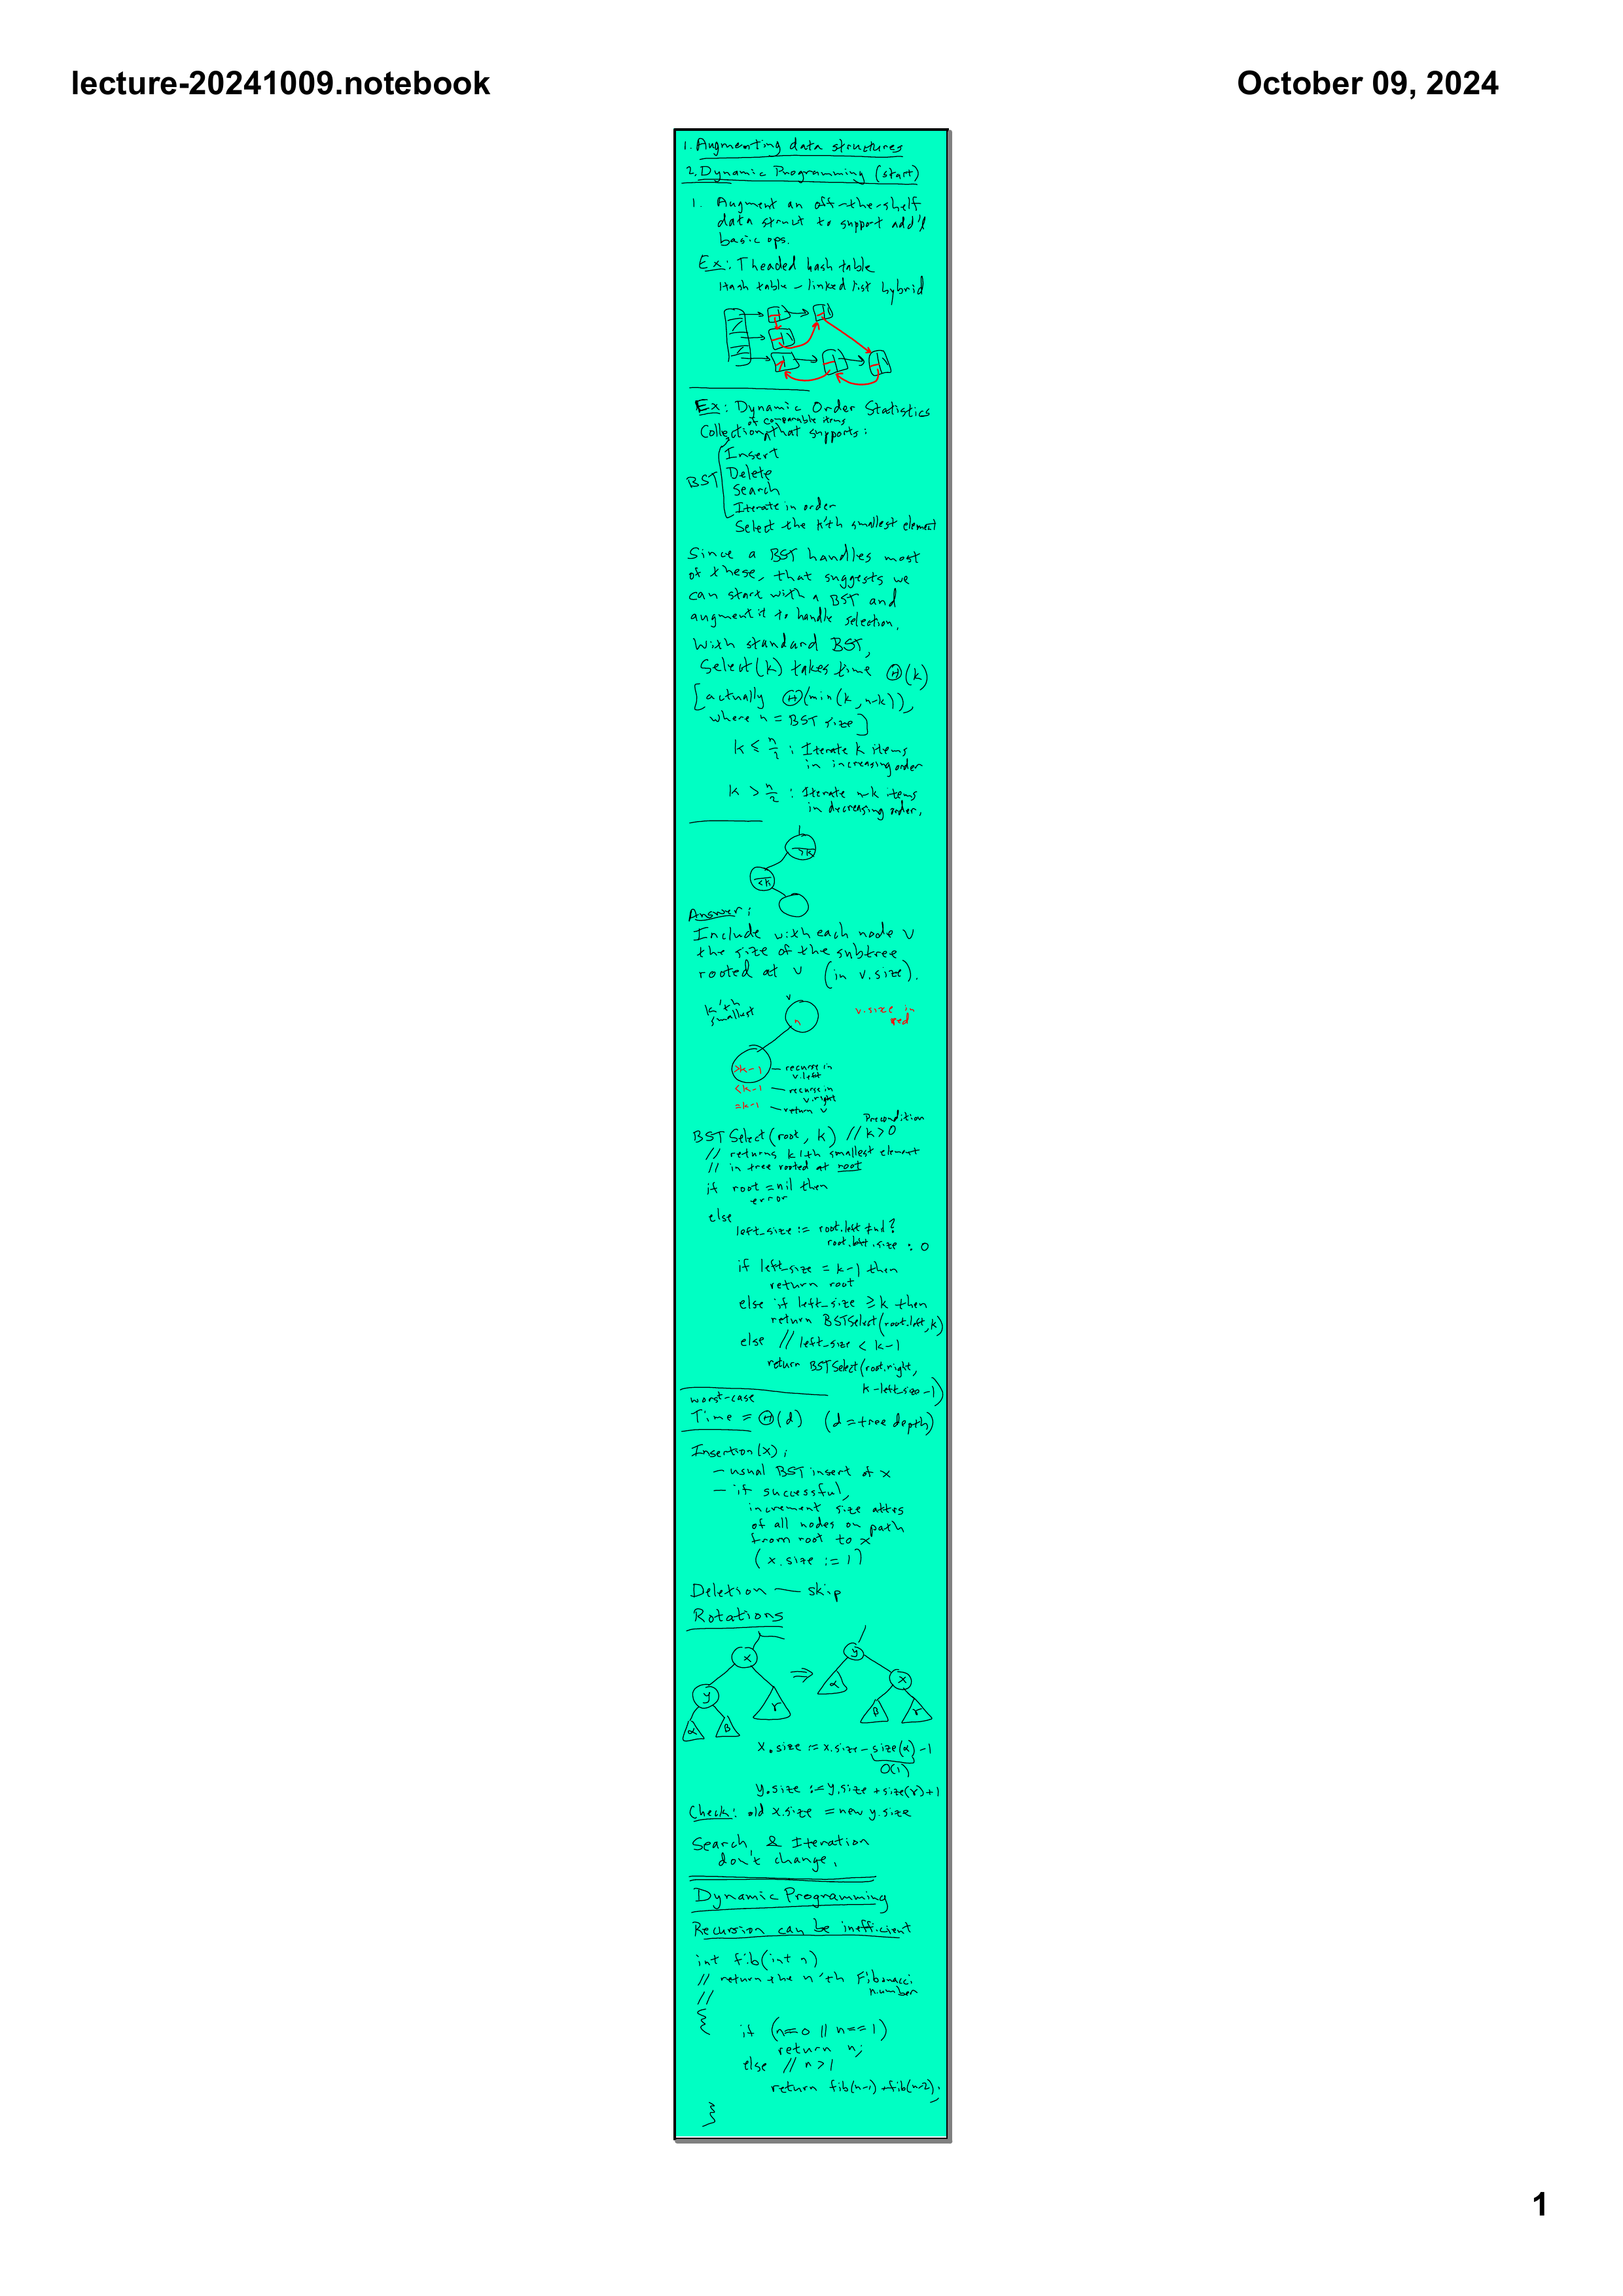 lecture-20241009.notebook
October 09, 2024
1. Augmenting data structures
2. Dynamic Programming (start)
1. Augment an off-the-shelf
data struct to support add'l
basic ops.
Ex: Theaded hash table
Hash table - linked list hybrid
Ex: Dynamic Order Statistics
of comparable items
Collection that supports:
Insert
Delete
BST
Search
Iterate in order
Select the k'th smallest element
Since a BST handles most
of these, that suggests we
can start with a BST and
augment it to handle selection.
With standard BST,
Select(k) takes time Θ(k)
[actually Θ(min(k, n-k)),
where n = BST size]
k ≤ n/2 : Iterate k items
in increasing order
k > n/2 : Iterate n-k items
in decreasing order.
>k
<k
Answer:
Include with each node v
the size of the subtree
rooted at v (in v.size).
k'th
smallest
v
n
v.size in
red
>k-1 — recurse in
v.left
<k-1 — recurse in
v.right
=k-1 — return v
Precondition
BSTSelect(root, k) // k>0
// returns k'th smallest element
// in tree rooted at root
if root = nil then
error
else
left_size := root.left ≠ nil ?
root.left.size : 0
if left_size = k-1 then
return root
else if left_size ≥ k then
return BSTSelect(root.left, k)
else // left_size < k-1
return BSTSelect(root.right,
k-left_size-1)
worst-case
Time = Θ(d) (d = tree depth)
Insertion(x):
- usual BST insert of x
- if successful,
increment size attrs
of all nodes on path
from root to x
(x.size := 1)
Deletion — skip
Rotations
x y
⇒
α x
y γ
β γ
α β
x.size := x.size - size(α) - 1
O(1)
y.size := y.size + size(γ) + 1
Check: old x.size = new y.size
Search & Iteration
don't change.
Dynamic Programming
Recursion can be inefficient
int fib(int n)
// return the n'th Fibonacci
number
//
{
if (n==0 || n==1)
return n;
else // n>1
return fib(n-1) + fib(n-2);
}
1